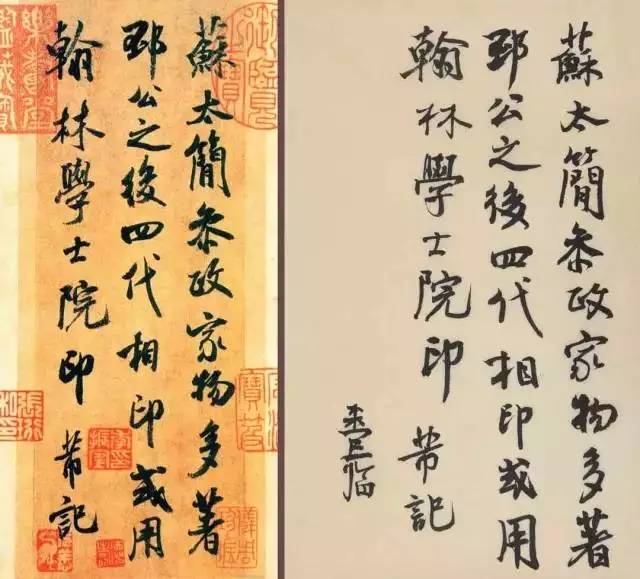 蘇太簡叅政家物多著
邳公之後四代相印或用
翰林學士院印
芾記
蘇太簡叅政家物多著
邳公之後四代相印或用
翰林學士院印
芾記